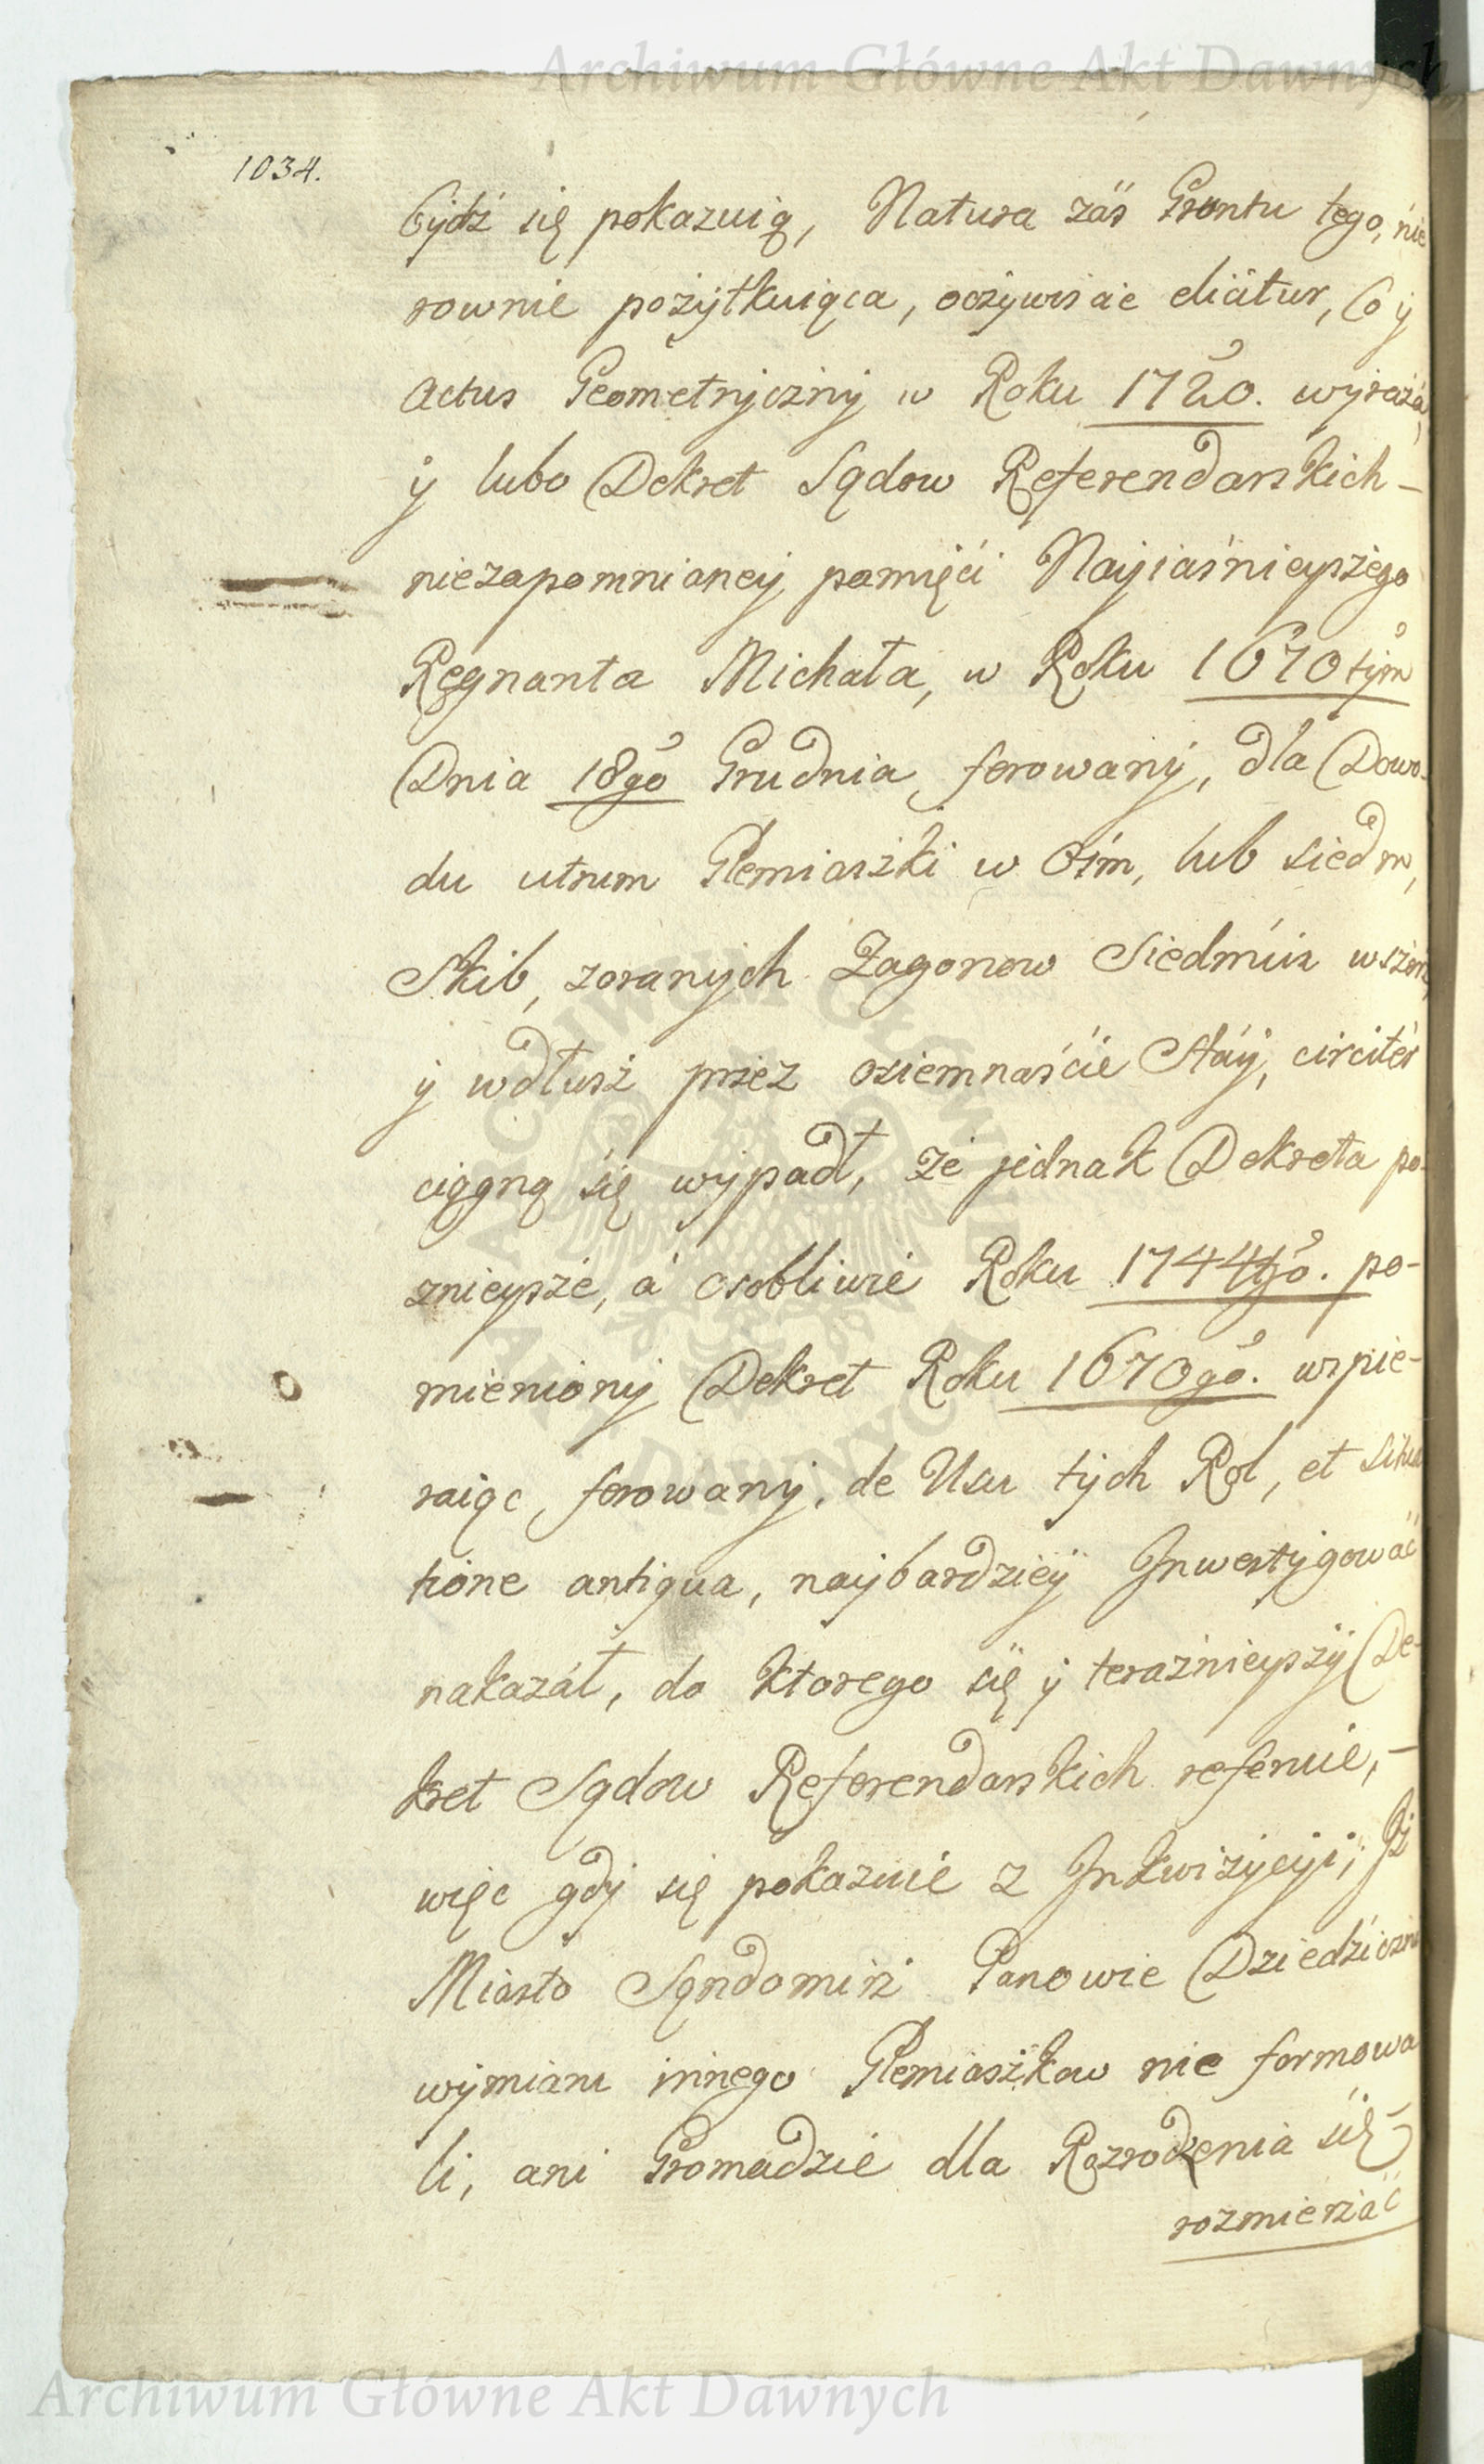 Archiwum Główne Akt Dawnych
1034.
bydź się pokazuią, Natura zaś Gruntu tego, nie
rownie pożytkuiąca, oczywiscie elicitur, Co y
Actus Geometryczny w Roku 1720. wyraża,
y lubo Dekret Sądow Referendarskich –
niezapomnianey pamięći Nayiaśnieyszego
Regnanta Michała, w Roku 1670tym
Dnia 18go Grudnia, ferowany, dla Dowo-
du utrum Plemiaszki w Ośm, lub siedm,
Skib, zoranych Zagonow Siedmiu wszerz,
y wdłusz przez osiemnaście Stáy, circiter
ciągną się wypadł, że jednak Dekreta po-
znieysze, á osobliwie Roku 1744go. po-
mieniony Dekret Roku 1670go. wspie-
raiąc, ferowany, de Usu tych Rol, et situa
tione antiqua, naybardziey Jnwestygować
nakazáł, do ktorego się y teraźnieyszy De-
kret Sądow Referendarskich referuie, –
więc gdy się pokazuie z Jnkwizycyi, Jż
Miasto Sąndomirz Panowie Dziedziczni
wymiaru innego Plemiaszkow nie formowa
li, ani Gromadzie dla Rozrodzenia się
rozmierzać
ARCHIWUM GŁÓWNE AKT DAWNYCH
Archiwum Główne Akt Dawnych